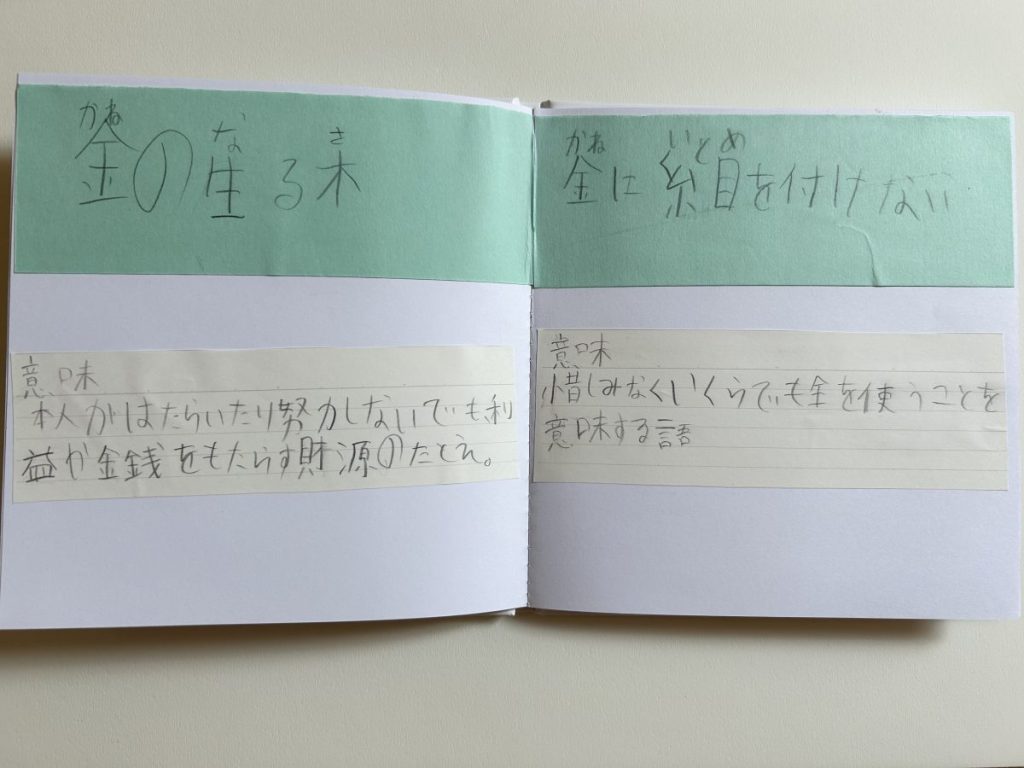 かね な き
金の生る木
意味
本人がはたらいたり努力しないでも利
益か金銭をもたらす財源のたとえ。
かね いとめ
金に糸目を付けない
意味
惜しみなくいくらでも金を使うことを
意味する語